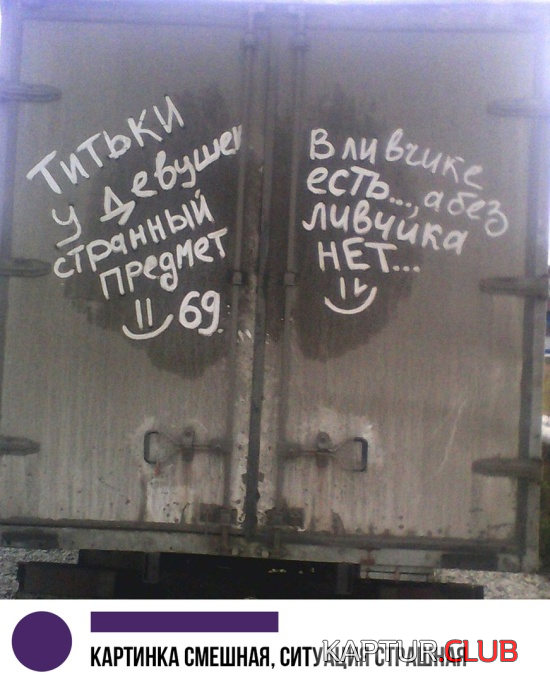 Титьки
у девушек
странный
предмет
69.
В ливчике
есть..., а без
ливчика
НЕТ...
КАРТИНКА СМЕШНАЯ, СИТУАЦИЯ СТРАШНАЯ
KAPTUR.CLUB